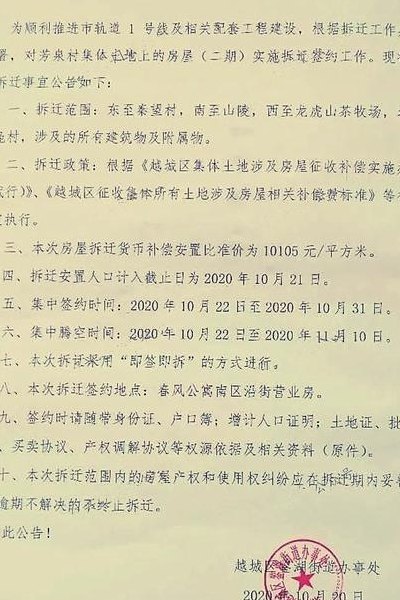 为顺利推进市轨道 1 号线及相关配套工程建设，根据拆迁工作
署，对芳泉村集体土地上的房屋（二期）实施拆迁签约工作。现
拆迁事宜公告如下：
一、拆迁范围：东至秦望村，南至山陵，西至龙虎山茶牧场，
村，涉及的所有建筑物及附属物。
二、拆迁政策：根据《越城区集体土地涉及房屋征收补偿实施
试行）》、《越城区征收集体所有土地涉及房屋相关补偿费标准》等
执行。
三、本次房屋拆迁货币补偿安置比准价为 10105 元/平方米。
四、拆迁安置人口计入截止日为 2020 年 10 月 21 日。
五、集中签约时间：2020 年 10 月 22 日至 2020 年 10 月 31 日。
六、集中腾空时间：2020 年 10 月 22 日至 2020 年 11 月 10 日。
七、本次拆迁采用“即签即拆”的方式进行。
八、本次拆迁签约地点：春风公寓南区沿街营业房。
九、签约时请随带身份证、户口簿；增计人口证明；土地证、批
、买卖协议、产权调解协议等权源依据及相关资料（原件）。
十、本次拆迁范围内的房屋产权和使用权纠纷应在拆迁期内妥
逾期不解决的不终止拆迁。
此公告！
越城区鉴湖街道办事处
2020 年 10 月 20 日